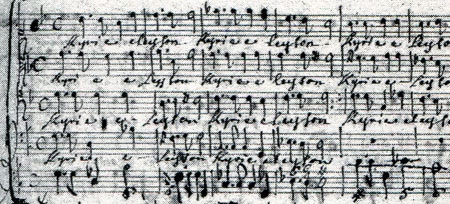 Kyrie eleyson Kyrie e leyson - Kyrie e leyso
Kyri e e Leyson Kyrie e leyson Kyrie e - Leyso
Kyrie e y - Leyson Kyrie e Leyson Kyrie eleyso
Kyrie e - e - leyson Kyrie eleyson